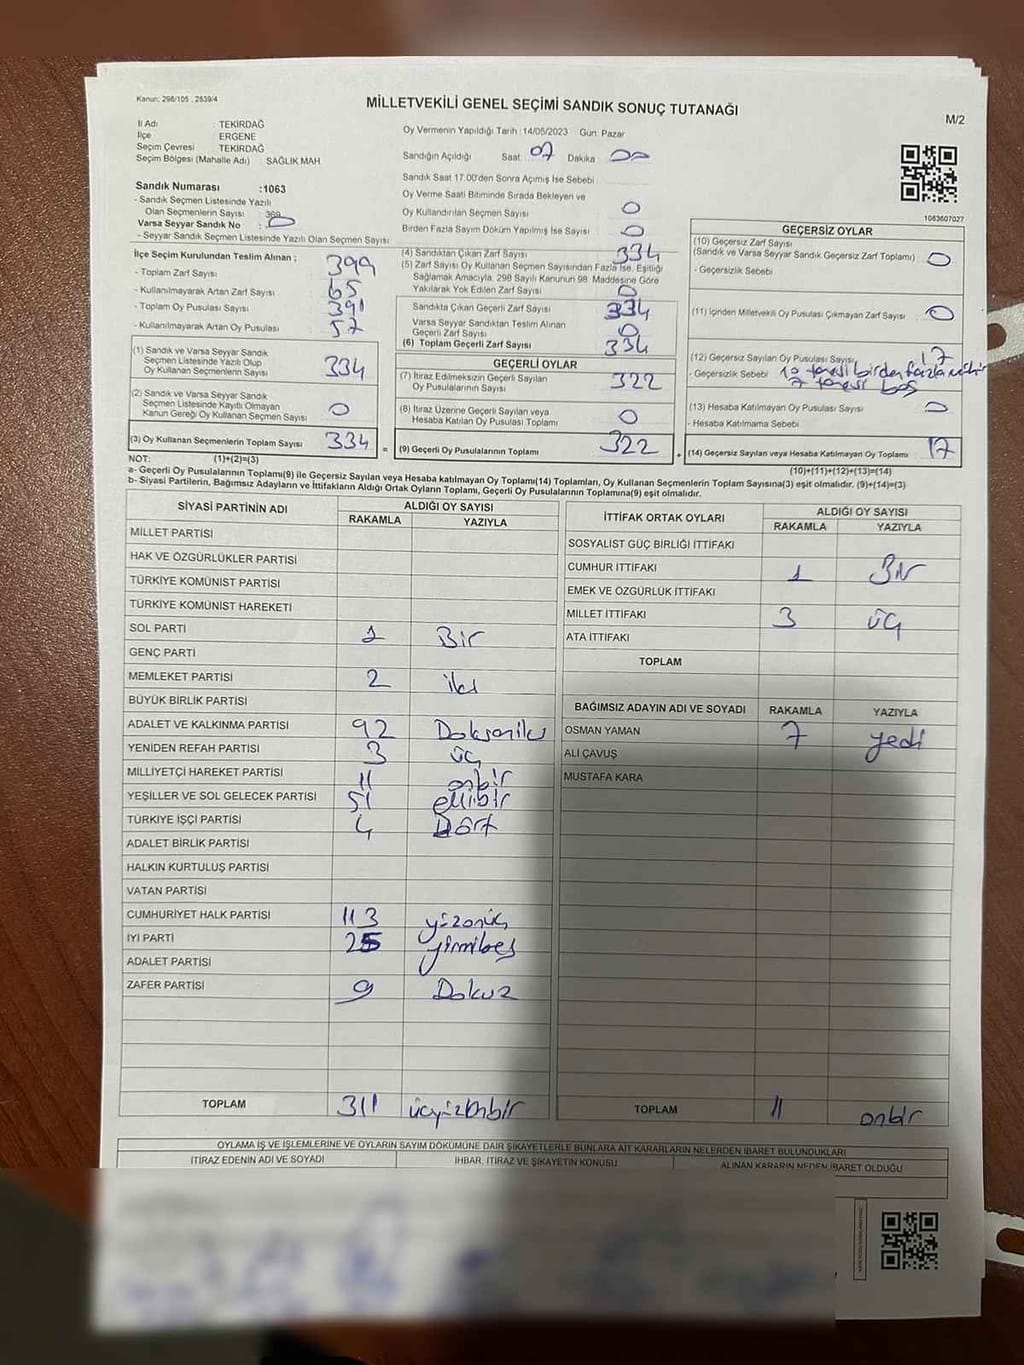 Kanun: 298/105 , 2839/4
MİLLETVEKİLİ GENEL SEÇİMİ SANDIK SONUÇ TUTANAĞI
M/2
İl Adı : TEKİRDAĞ
İlçe : ERGENE
Seçim Çevresi : TEKİRDAĞ
Seçim Bölgesi (Mahalle Adı) : SAĞLIK MAH
Sandık Numarası :1063
- Sandık Seçmen Listesinde Yazılı
Olan Seçmenlerin Sayısı: 369
Varsa Seyyar Sandık No : 0
- Seyyar Sandık Seçmen Listesinde Yazılı Olan Seçmen Sayısı
Oy Vermenin Yapıldığı Tarih :14/05/2023 Gün: Pazar
Sandığın Açıldığı Saat 07 Dakika 00
Sandık Saat 17:00'den Sonra Açımış İse Sebebi
Oy Verme Saati Bitiminde Sırada Bekleyen ve
Oy Kullandırılan Seçmen Sayısı 0
Birden Fazla Sayım Döküm Yapılmış İse Sayısı 0
1063607027
İlçe Seçim Kurulundan Teslim Alınan ;
- Toplam Zarf Sayısı 399
- Kullanılmayarak Artan Zarf Sayısı 65
- Toplam Oy Pusulası Sayısı 391
- Kullanılmayarak Artan Oy Pusulası 57
(1) Sandık ve Varsa Seyyar Sandık
Seçmen Listesinde Yazılı Olup
Oy Kullanan Seçmenlerin Sayısı 334
(2) Sandık ve Varsa Seyyar Sandık
Seçmen Listesinde Kayıtlı Olmayan
Kanun Gereği Oy Kullanan Seçmen Sayısı 0
(3) Oy Kullanan Seçmenlerin Toplam Sayısı 334 =
(4) Sandıktan Çıkan Zarf Sayısı 334
(5) Zarf Sayısı Oy Kullanan Seçmen Sayısından Fazla İse, Eşitliği
Sağlamak Amacıyla, 298 Sayılı Kanunun 98. Maddesine Göre
Yakılarak Yok Edilen Zarf Sayısı 0
Sandıkta Çıkan Geçerli Zarf Sayısı 334
Varsa Seyyar Sandıktan Teslim Alınan
Geçerli Zarf Sayısı 0
(6) Toplam Geçerli Zarf Sayısı 334
GEÇERLİ OYLAR
(7) İtiraz Edilmeksizin Geçerli Sayılan
Oy Pusulalarının Sayısı 322
(8) İtiraz Üzerine Geçerli Sayılan veya
Hesaba Katılan Oy Pusulası Toplamı 0
(9) Geçerli Oy Pusulalarının Toplamı 322 +
GEÇERSİZ OYLAR
(10) Geçersiz Zarf Sayısı
(Sandık ve Varsa Seyyar Sandık Geçersiz Zarf Toplamı) 0
- Geçersizlik Sebebi
(11) İçinden Milletvekili Oy Pusulası Çıkmayan Zarf Sayısı 0
(12) Geçersiz Sayılan Oy Pusulası Sayısı 17
- Geçersizlik Sebebi 10 tanesi birden fazla mühür
7 tanesi boş
(13) Hesaba Katılmayan Oy Pusulası Sayısı 0
- Hesaba Katılmama Sebebi
(14) Geçersiz Sayılan veya Hesaba Katılmayan Oy Toplamı 17
NOT: (1)+(2)=(3) (10)+(11)+(12)+(13)=(14)
a- Geçerli Oy Pusulalarının Toplamı(9) ile Geçersiz Sayılan veya Hesaba katılmayan Oy Toplamı(14) Toplamları, Oy Kullanan Seçmenlerin Toplam Sayısına(3) eşit olmalıdır. (9)+(14)=(3)
b- Siyasi Partilerin, Bağımsız Adayların ve İttifakların Aldığı Ortak Oyların Toplamı, Geçerli Oy Pusulalarının Toplamına(9) eşit olmalıdır.
SİYASİ PARTİNİN ADI ALDIĞI OY SAYISI
RAKAMLA YAZIYLA
MİLLET PARTİSİ
HAK VE ÖZGÜRLÜKLER PARTİSİ
TÜRKİYE KOMÜNİST PARTİSİ
TÜRKİYE KOMÜNİST HAREKETİ
SOL PARTİ 1 Bir
GENÇ PARTİ
MEMLEKET PARTİSİ 2 iki
BÜYÜK BİRLİK PARTİSİ
ADALET VE KALKINMA PARTİSİ 92 Doksaniki
YENİDEN REFAH PARTİSİ 3 üç
MİLLİYETÇİ HAREKET PARTİSİ 11 onbir
YEŞİLLER VE SOL GELECEK PARTİSİ 51 ellibir
TÜRKİYE İŞÇİ PARTİSİ 4 Dört
ADALET BİRLİK PARTİSİ
HALKIN KURTULUŞ PARTİSİ
VATAN PARTİSİ
CUMHURİYET HALK PARTİSİ 113 yüzonüç
İYİ PARTİ 25 yirmibeş
ADALET PARTİSİ
ZAFER PARTİSİ 9 Dokuz
TOPLAM 311 üçyüzonbir
İTTİFAK ORTAK OYLARI ALDIĞI OY SAYISI
RAKAMLA YAZIYLA
SOSYALİST GÜÇ BİRLİĞİ İTTİFAKI
CUMHUR İTTİFAKI 1 Bir
EMEK VE ÖZGÜRLÜK İTTİFAKI
MİLLET İTTİFAKI 3 üç
ATA İTTİFAKI
TOPLAM
BAĞIMSIZ ADAYIN ADI VE SOYADI RAKAMLA YAZIYLA
OSMAN YAMAN 7 yedi
ALİ ÇAVUŞ
MUSTAFA KARA
TOPLAM 11 onbir
OYLAMA İŞ VE İŞLEMLERİNE VE OYLARIN SAYIM DÖKÜMÜNE DAİR ŞİKAYETLERLE BUNLARA AİT KARARLARIN NELERDEN İBARET BULUNDUKLARI
İTİRAZ EDENİN ADI VE SOYADI İHBAR, İTİRAZ VE ŞİKAYETİN KONUSU ALINAN KARARIN NEDEN İBARET OLDUĞU